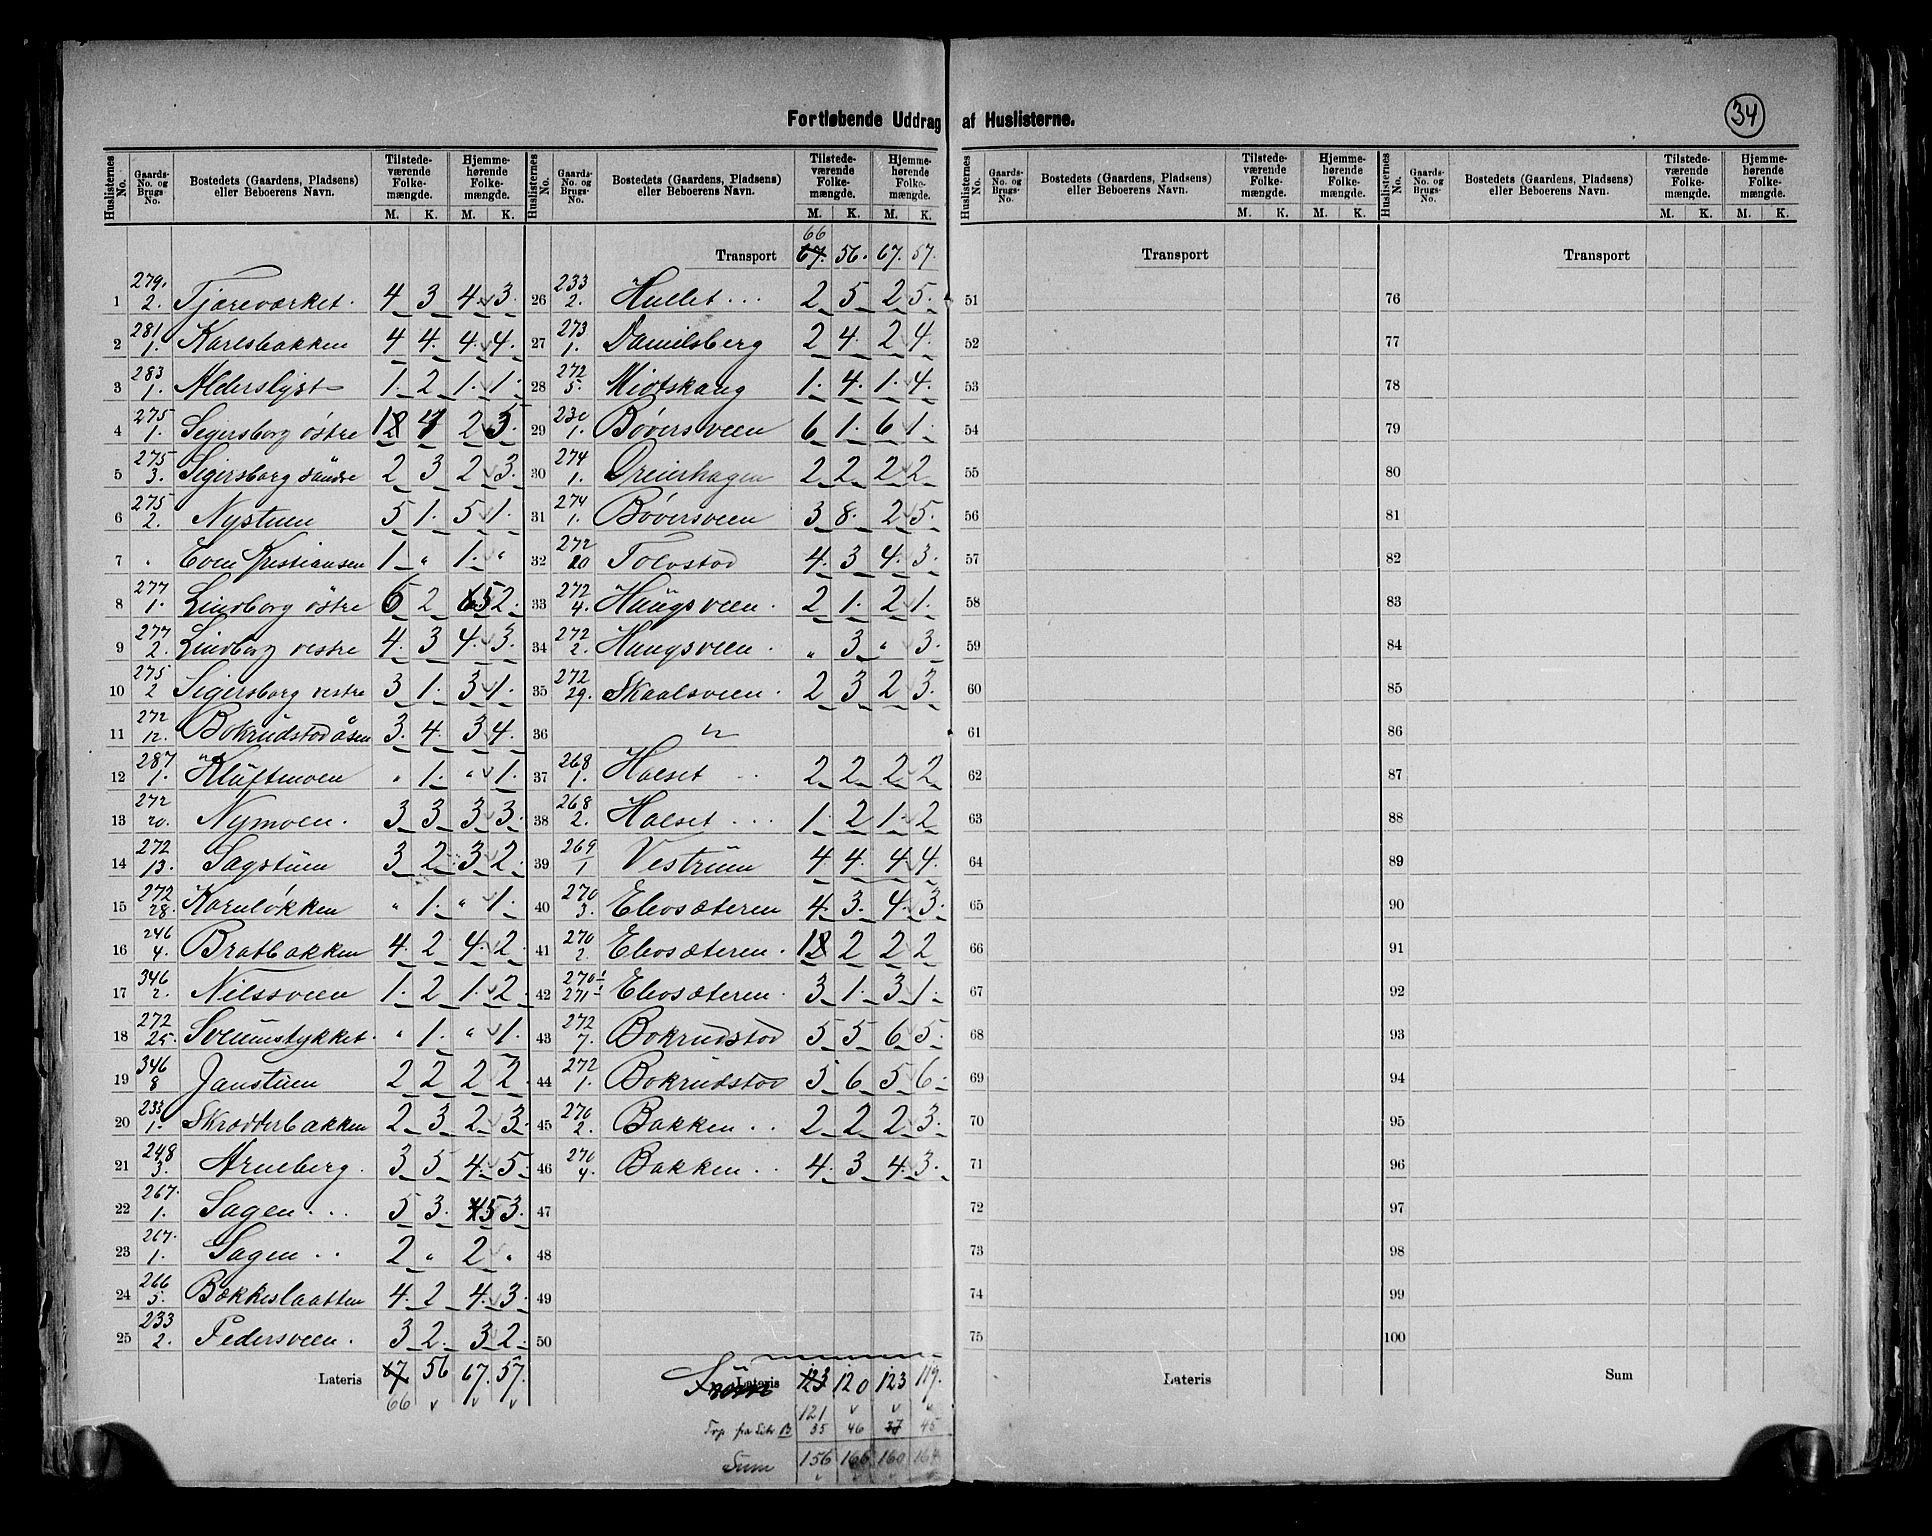 Fortløbende Uddrag af Huslisterne.
34
Huslisternes No. Gaards-No. og Brugs-No. Bostedets (Gaardens, Pladsens) eller Beboerens Navn. Tilstedeværende Folkemængde. M. K. Hjemmehørende Folkemængde. M. K.
1 279. 2. Tjæreværket. 4 3 4 3.
2 281 1. Karlsbakken 4 4. 4. 4.
3 283 1. Alderslyst 1. 2 1. 1.
4 275 1. Segersborg østre 1 4 2 3.
5 275 3. Sigersborg søndre 2 3 2 3.
6 275 2. Nystuen 5 1. 5 1.
7 " Even Kristiansen 1. " 1. "
8 277 1. Lindborg østre 6 2 5 2.
9 277 2. Lindborg vestre 4. 3 4. 3.
10 275 2 Sigersborg vestre 3 1. 3 1.
11 272 12. Bokrudstødåsen 3. 4. 3 4.
12 287 1. Kluftmoen " 1. " 1.
13 272 20. Nymoen. 3 3 3 3.
14 272 13. Sagstuen 3 2. 3 2.
15 272 28. Kornløkken " 1. " 1.
16 246 4. Bratbakken 4. 2 4. 2.
17 346 2. Nilssveen 1. 2 1. 2.
18 272 25. Sveumstykket. " 1. " 1.
19 346 8 Janstuen 2 2 2 2.
20 233 1. Skrædderbakken 2 3 2 3.
21 248 3. Arneberg. 3 5 4. 5.
22 267. 1. Sagen ... 5 3. 5 3.
23 267. 1. Sagen .. 2 " 2 "
24 266 5. Bækkeslaatten 4. 2 4. 3.
25 233 2. Pedersveen. 3 2. 3 2.
Lateris 67 56 67. 57.
66
66
Transport 67. 56. 67. 57.
26 233 2. Hullet ... 2 5 2 5.
27 273 1. Danielsberg 2 4. 2 4.
28 272 5. Midtskaug 1. 4. 1. 4.
29 230 1. Bøversveen 6 1. 6 1.
30 274 1. Dreierhagen 2 2 2 2.
31 274 1. Bøversveen 3 8. 2 5.
32 272 20 Tolvstod 4. 3 4. 3.
33 272 4. Haugsveen. 2 1. 2 1.
34 272 2. Haugsveen. " 3 " 3.
35 272 29. Skaalsveen. 2 3 2 3.
36 "
37 268 1. Holset .. 2 2 2 2
38 268 2. Holset ... 1. 2 1. 2
39 269 1 Vestrum 4 4. 4 4.
40 270 3. Elvosæteren 4. 3. 4. 3
41 270 2. Elvosæteren. 1 2 2 2
42 270 1 271 1 Elvosæteren. 3 1. 3 1.
43 272 7. Bokrudstod 5 5 6 5.
44 272 1. Bokrudstod 5 6 5 6.
45 270 2. Bakken .. 2 2 2 3.
46 270 4. Bakken .. 4. 3 4. 3.
47
48
49
50
Lateris 123 120 123 119.
121
Trp fra Litr B 35 46 37 45
Sum 156 166 160 164
Huslisternes No. Gaards-No. og Brugs-No. Bostedets (Gaardens, Pladsens) eller Beboerens Navn. Tilstedeværende Folkemængde. M. K. Hjemmehørende Folkemængde. M. K.
Transport
51
52
53
54
55
56
57
58
59
60
61
62
63
64
65
66
67
68
69
70
71
72
73
74
75
Lateris
Transport
76
77
78
79
80
81
82
83
84
85
86
87
88
89
90
91
92
93
94
95
96
97
98
99
100
Sum